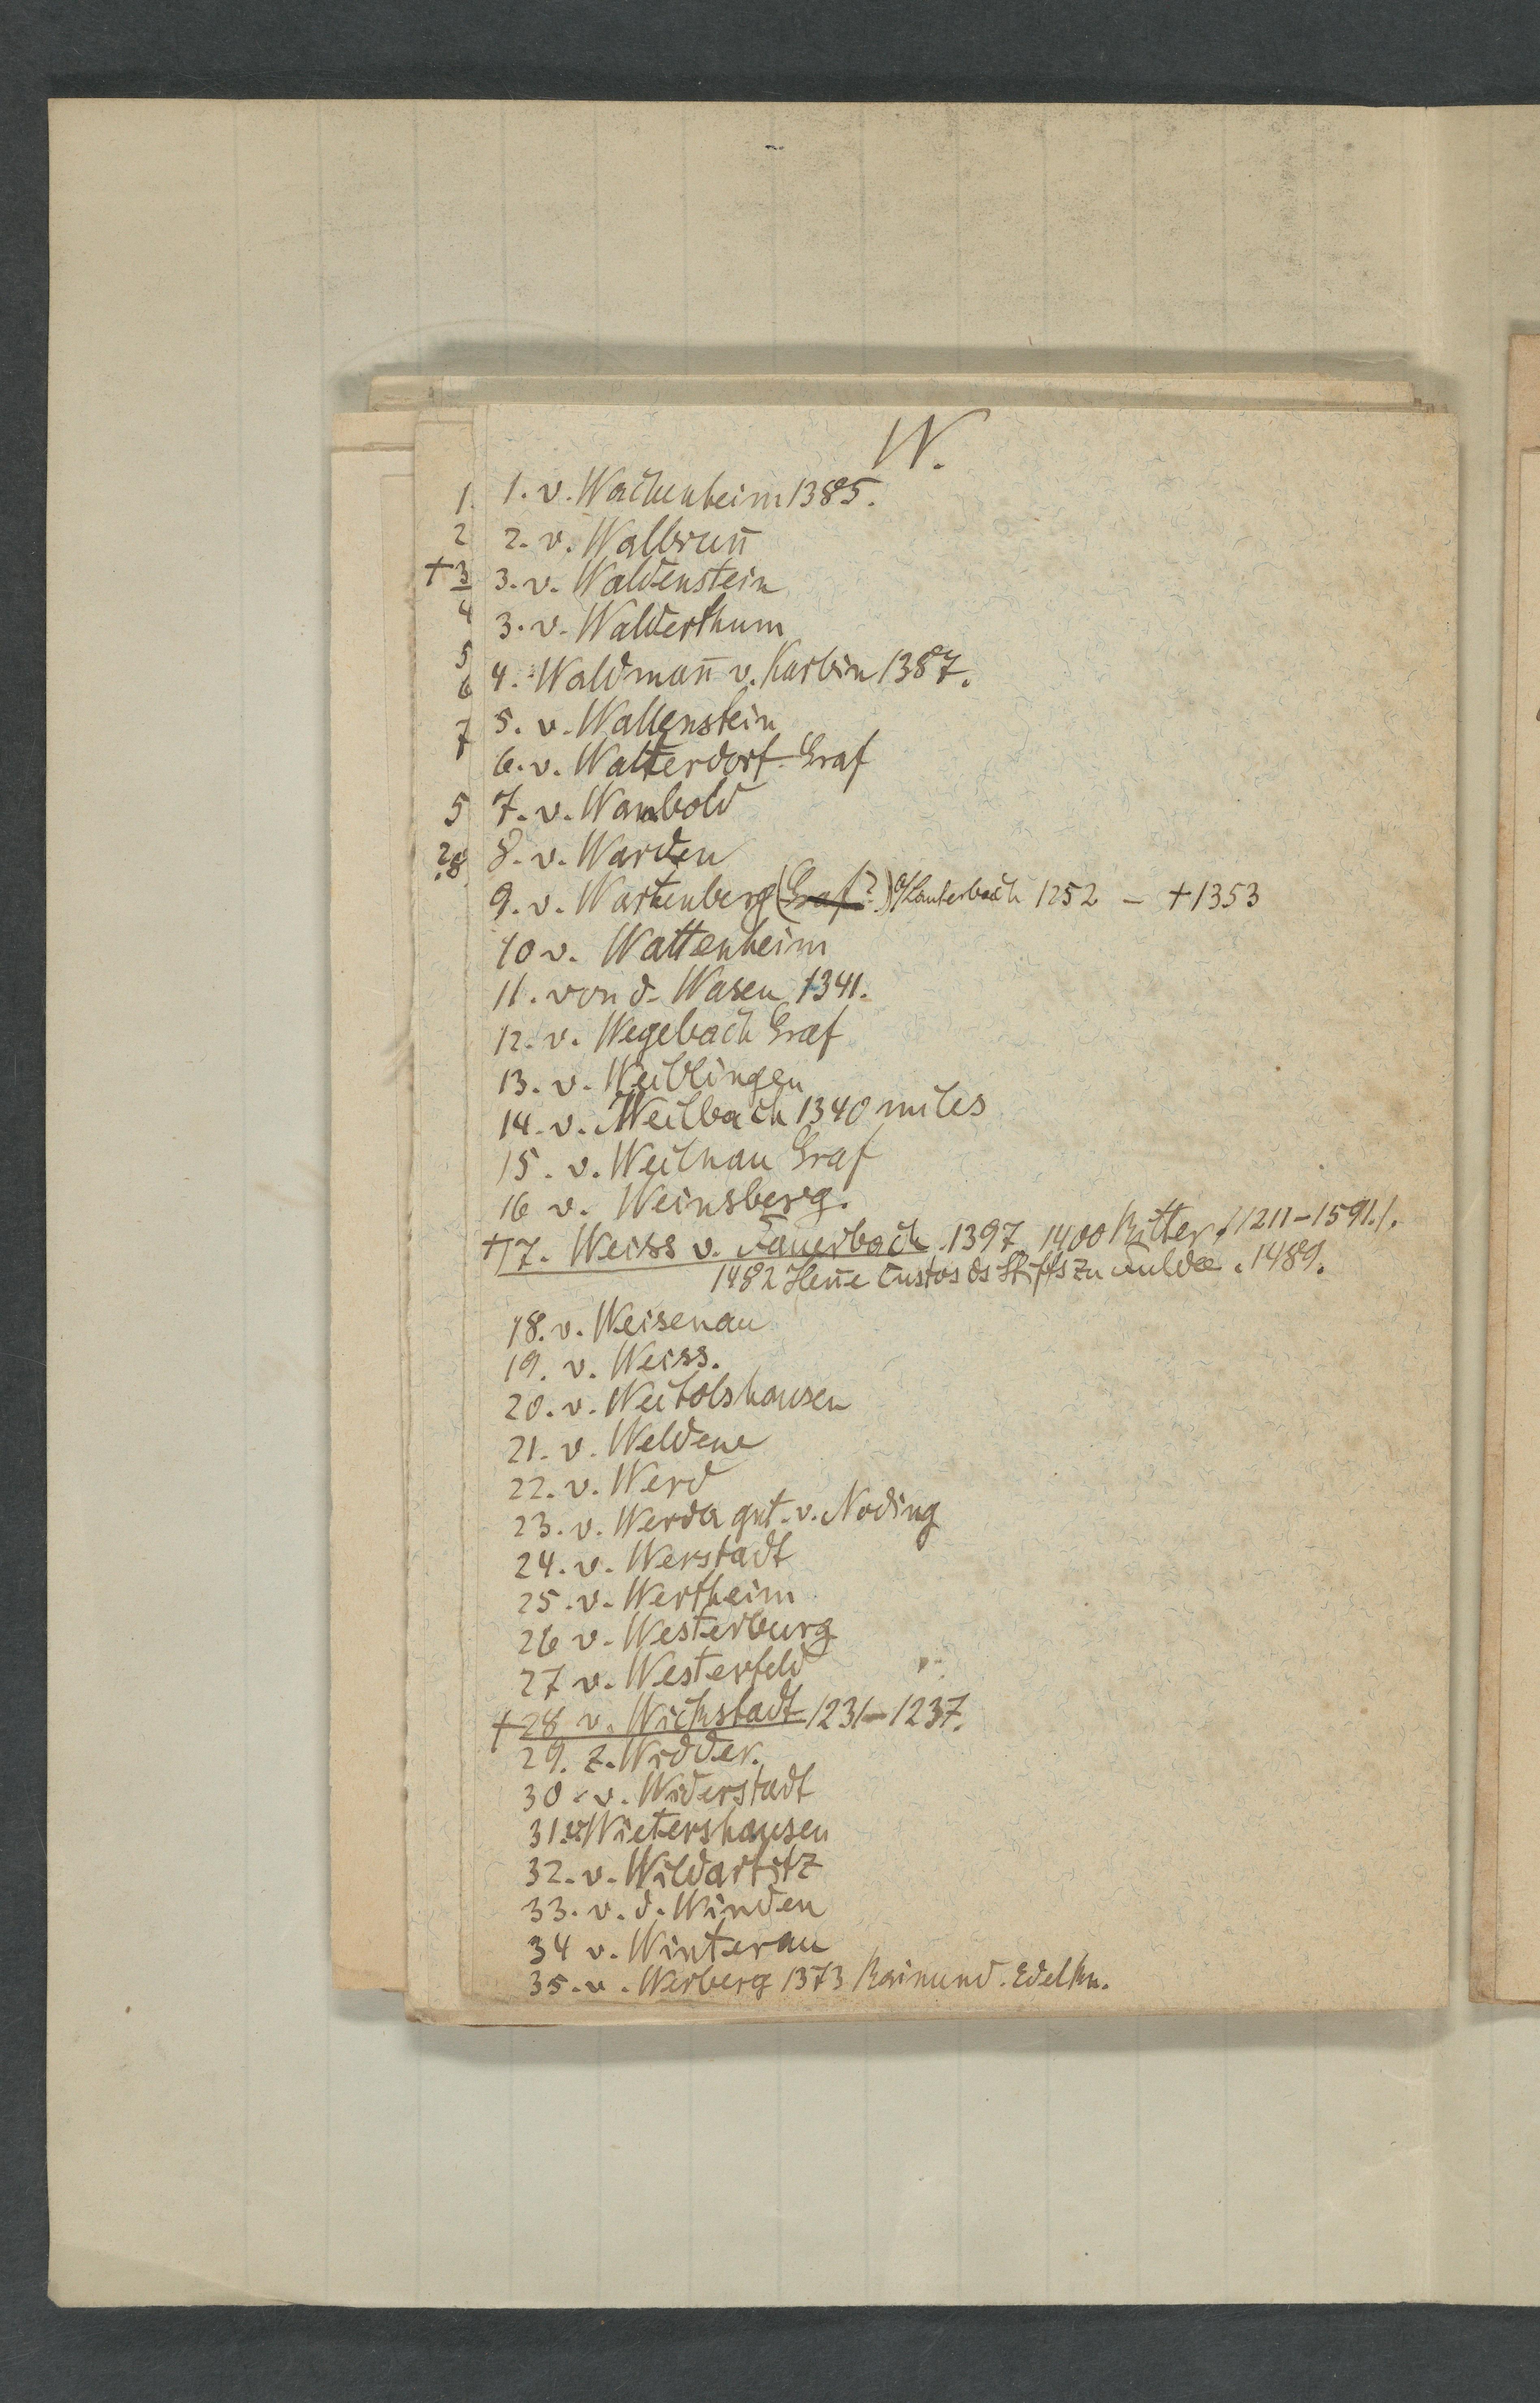 W.
1. 1. v. Wachenheim 1385.
2 2. v. Wallbrun̄
+3 3. v. Waldenstein
4 3. v. Walderthum
5
6 4. Waldman̄ v. Karbin 1387.
7 5. v. Wallenstein
6. v. Walterdorf Graf
5 7. v. Wambold
?8. 8. v. Warden
9. v. Wartenberg (Graf?) a/Lauterbach 1252 - +1353
10 v. Wattenheim
11. von d. Wasen 1341.
12. v. Wegebach Graf
13. v. Weiblingen
14. v. Weilbach 1340 miles
15. v. Weilnau Graf
16 v. Weinsberg.
+17. Weiss v. Fauerbach. 1397 1400 Ritter /1211-1591./.
1482 Hen̄e Custos ds Stifts zu Fulda. 1489.
18. v. Weisenau
19. v. Weiss.
20. v. Weitolshausen
21. v. Weldene
22. v. Werd
23. v. Werda gnt. v. Noding
24. v. Werstadt
25. v. Wertheim
26 v. Westerburg
27 v. Westerfeld
+28 v. Wichstadt 1231-1237.
29. z. Widder.
30. v. Widerstadt
31. v. Wietershausen
32. v. Wildartitz
33. v. d. Winden
34 v. Winterau
35. v. Werberg 1373 Raimund. Edelkn.